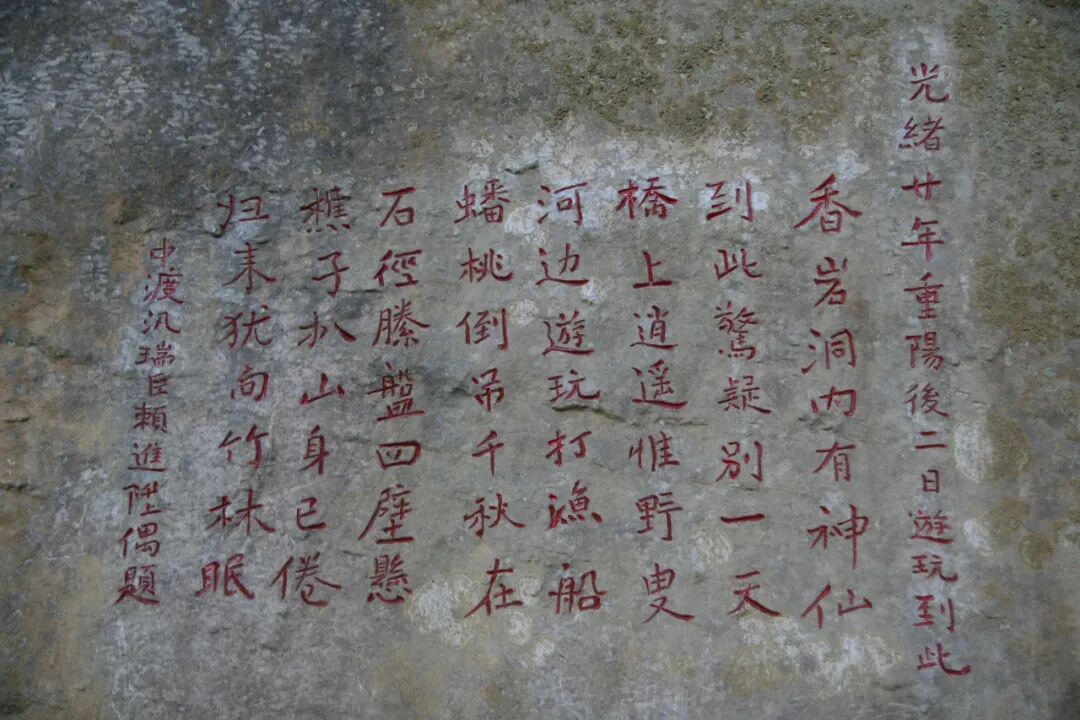 光緒廿年重陽後二日遊玩到此
香岩洞内有神仙
到此驚疑别一天
橋上逍遥惟野叟
河边遊玩打漁船
蟠桃倒吊千秋在
石徑縢盤四壁懸
樵子扒山身已倦
归来犹向竹林眠
中渡汛瑞臣賴進陞偶題